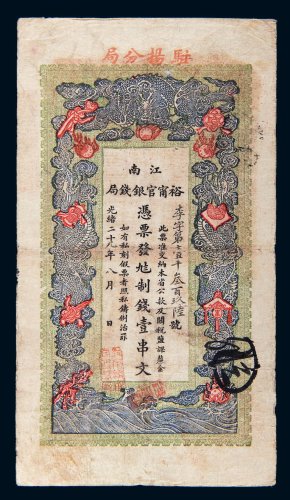 駐揚分局
江南
裕甯官銀錢局
李字第七百五十叁百玖陸號
此票准交納本省公款及關稅鹽課釐金
憑票發𠫵制錢壹串文
如有私刻假票者照私鑄例治罪
光緒二十九年八月 日